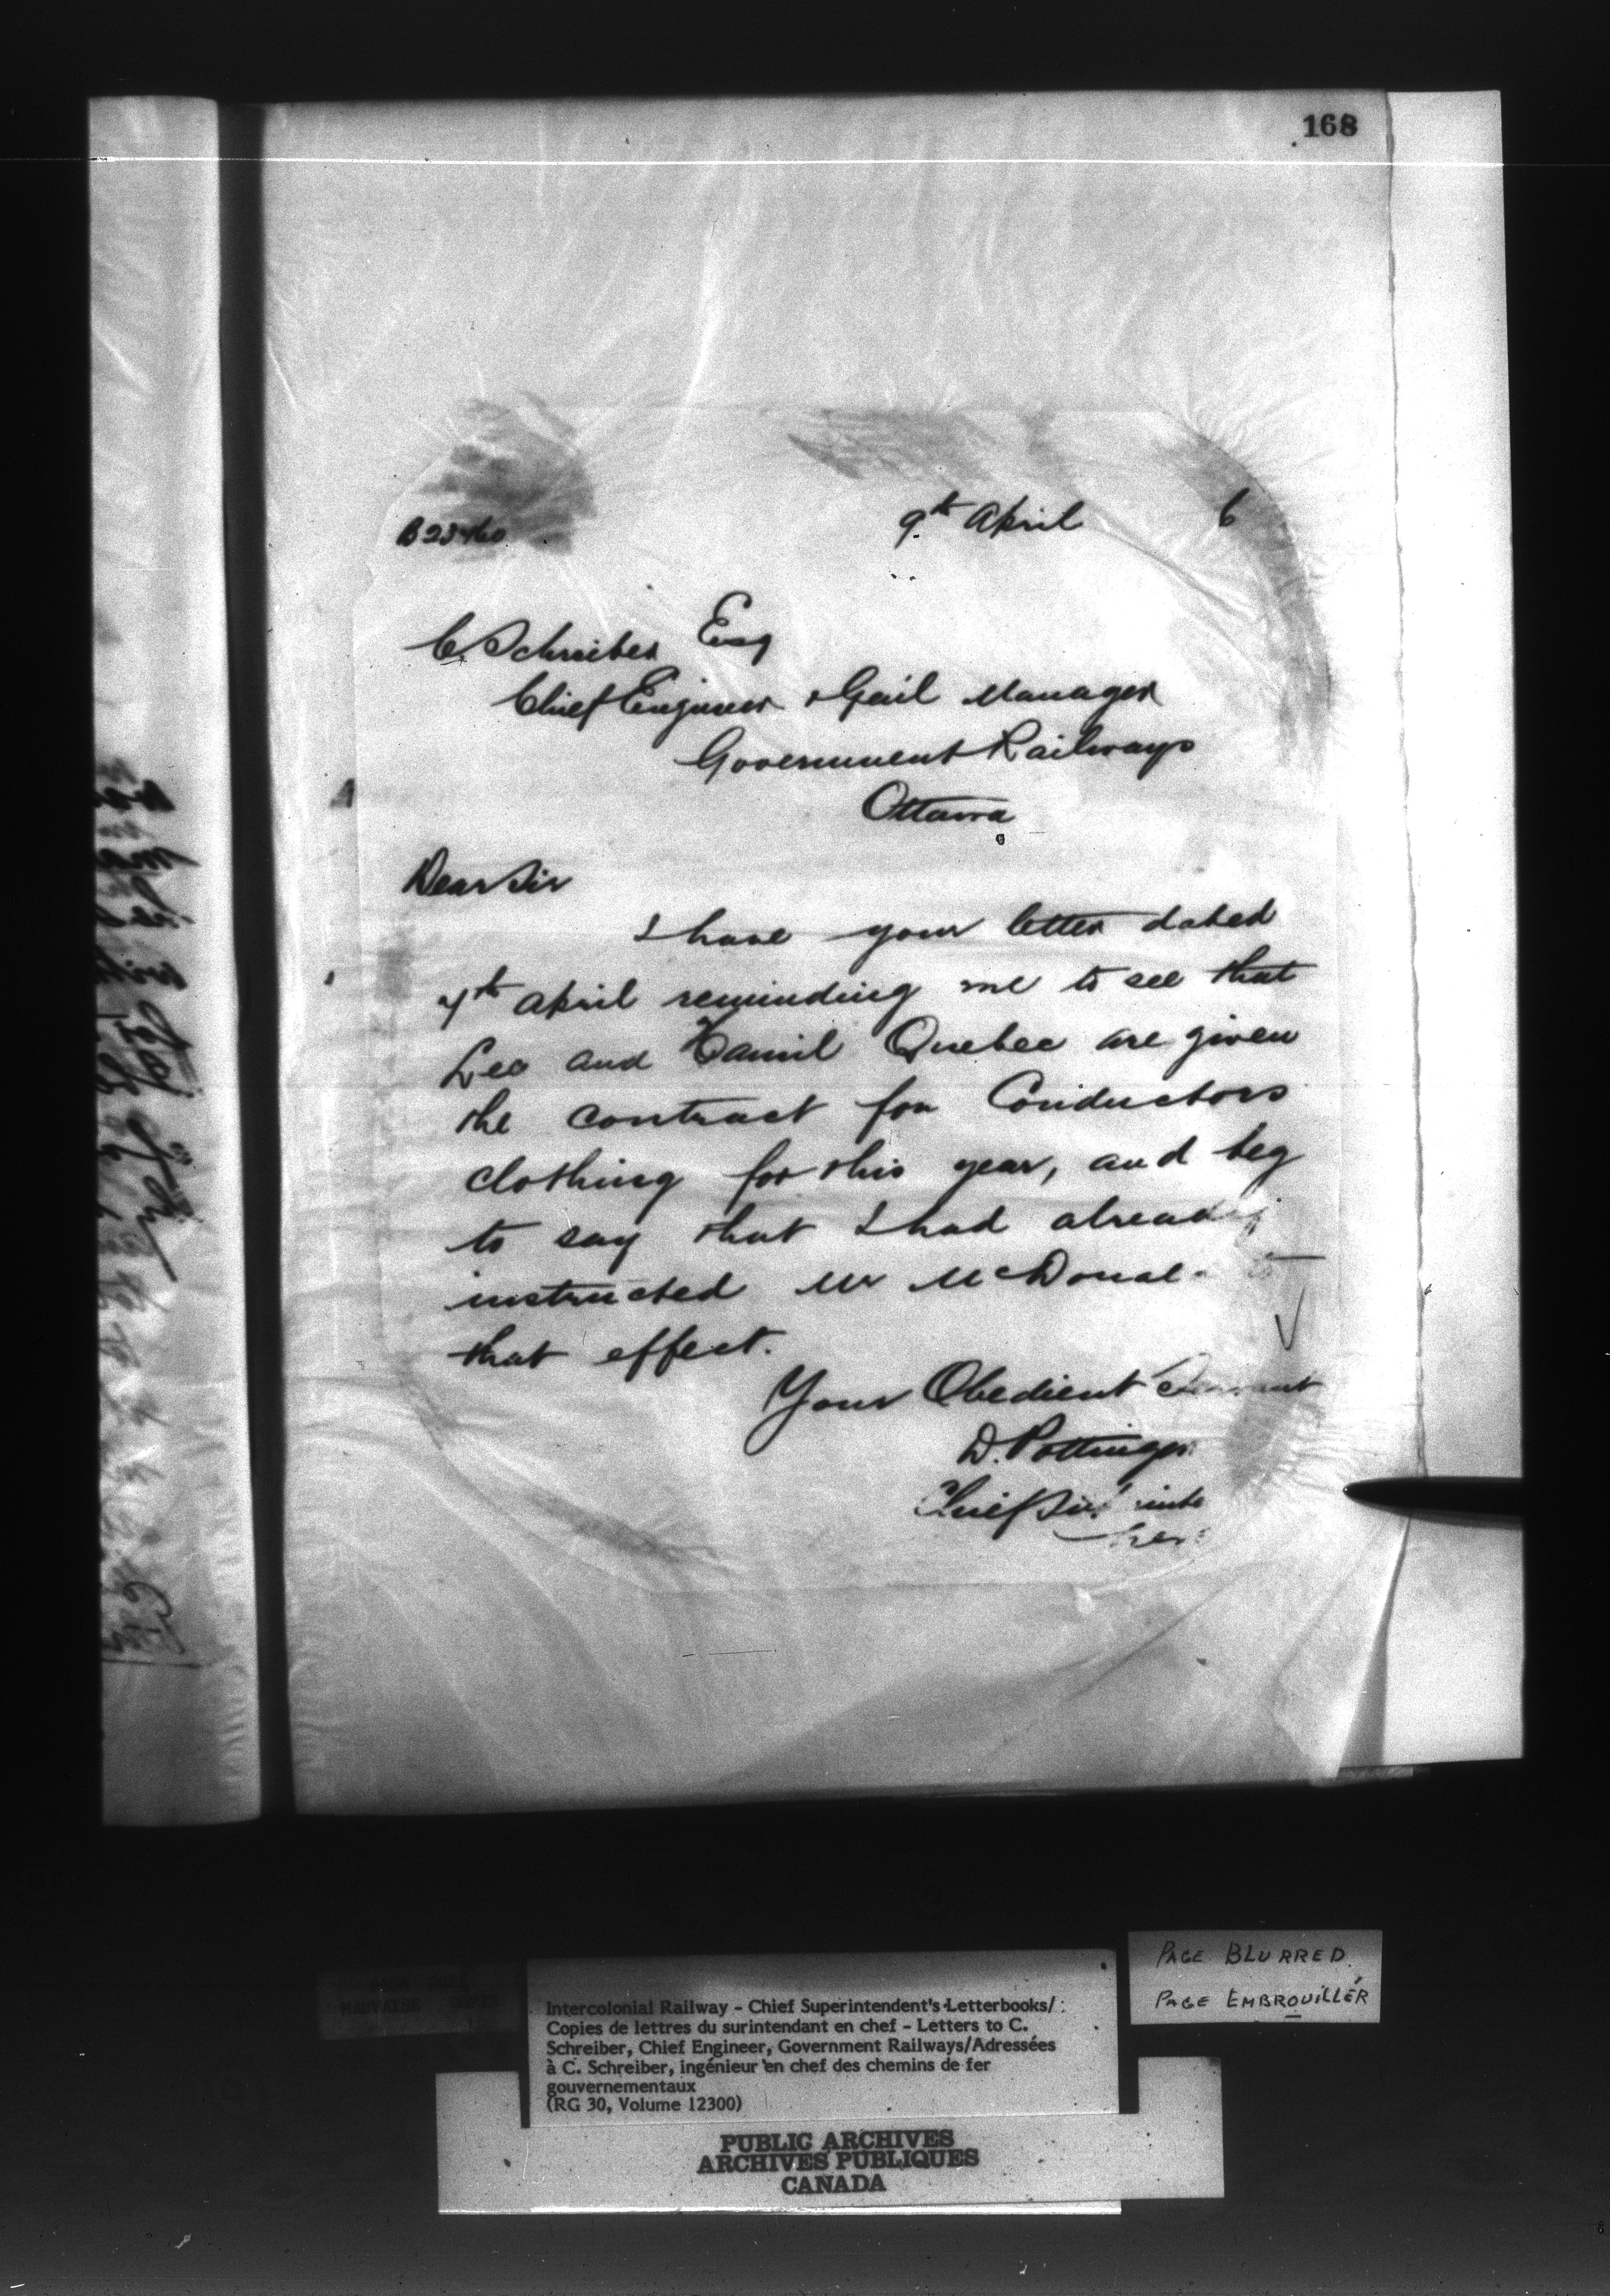 168
9th April 6
B23460
C. Schreiber Esq
Chief Engineer & Genl Manager
Government Railways
Ottawa
Dear Sir
I have your letter dated
7th April reminding me to see that
Leo and Quebec are given
the contract for Conductors
clothing for this year, and beg
to say that I had already
instructed Mr McDonal to
that effect.
Your Obedient Servant
D. Pottinger
Chief
PAGE BLURRED.
PAGE EMBROUILLÉR
Intercolonial Railway - Chief Superintendent's Letterbooks/
Copies de lettres du surintendant en chef - Letters to C.
Schreiber, Chief Engineer, Government Railways/Adressées
à C. Schreiber, ingénieur en chef des chemins de fer
gouvernementaux
(RG 30, Volume 12300)
PUBLIC ARCHIVES
ARCHIVES PUBLIQUES
CANADA